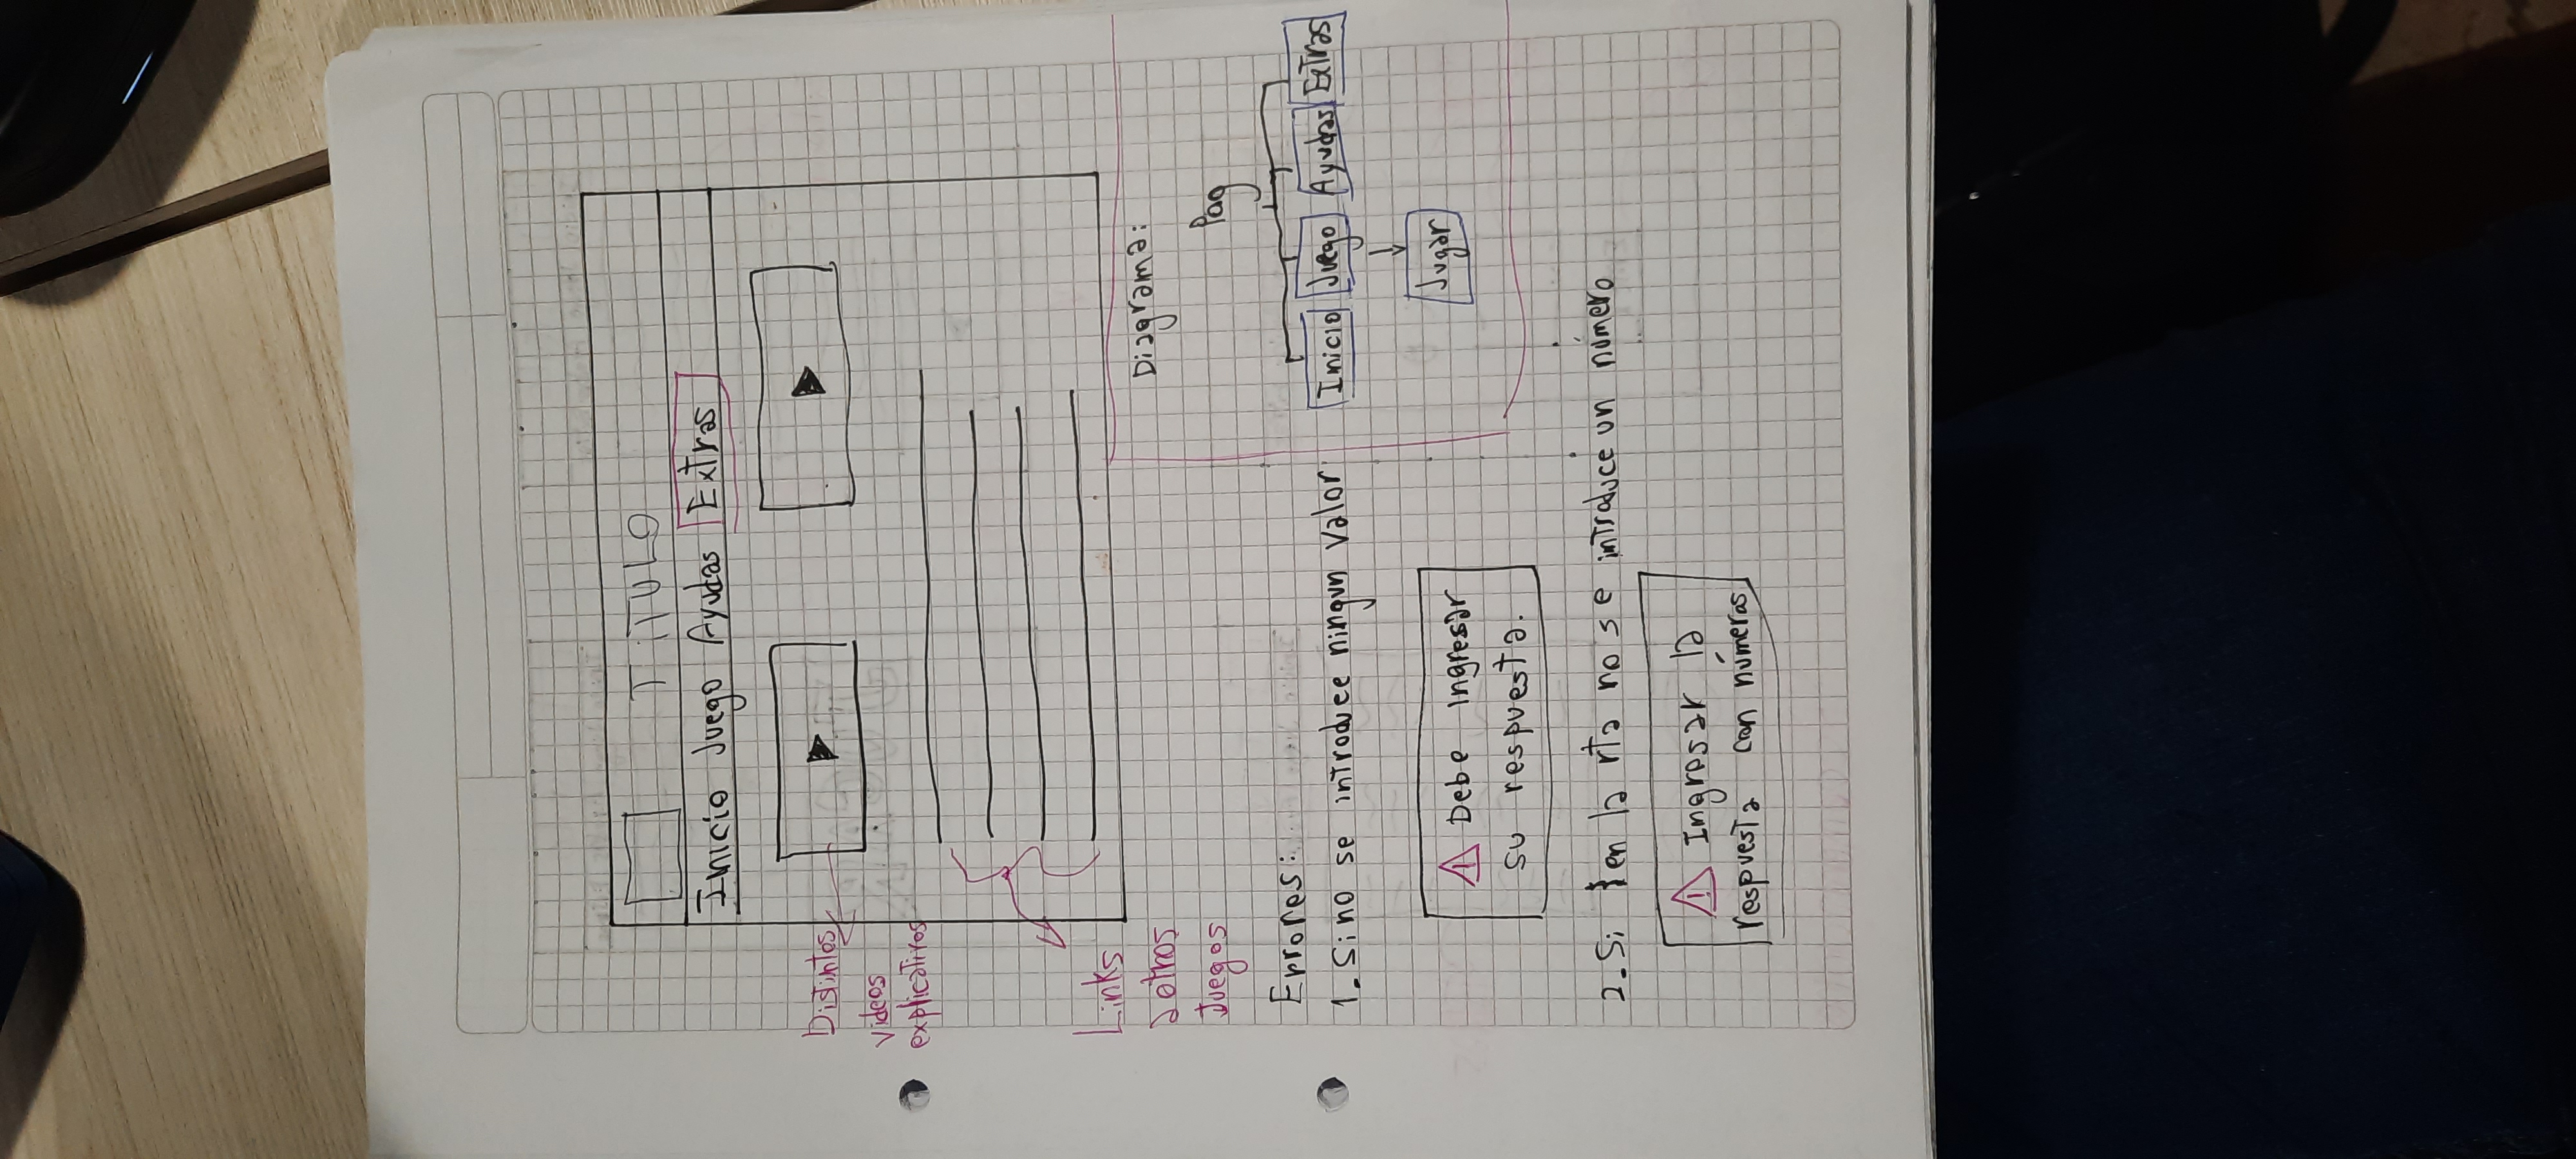 TITULO
Inicio Juego Ayudas Extras
Distintos
videos
explicativos
Links
a otros
Juegos
Diagrama:
Pag
Inicio Juego Ayudas Extras
Jugar
Errores:
1. Si no se introduce ningun valor
Debe ingresar
su respuesta.
2. Si en la rta no se introduce un número
Ingresar la
respuesta con números